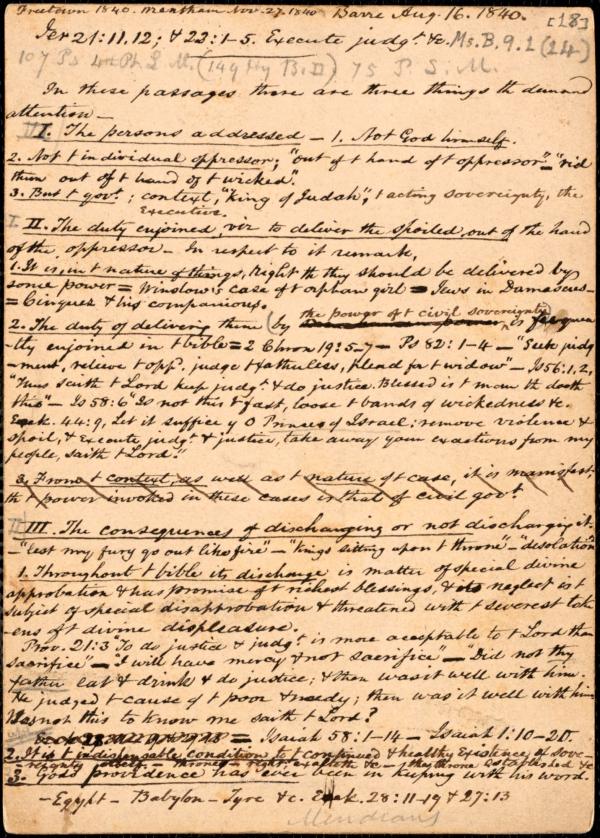 Freetown 1840. Mentham Nov. 27. 1840 Barre Aug. 16. 1840. [18]
Jer 21:11,12; & 22:1-5. Execute judgt. &c. Ms. B. 9.1 (24)
107 Ps 4th Pt. L. M. (149 Hy B. II) 75 P. S. M.
In these passages there are three things th demand
attention —
III. The persons addressed — 1. Not God himself.
2. Not t individual oppressor; "out of t hand of t oppressor" — "rid
them out of t hand of t wicked".
3. But t govt.; context, "King of Judah", t acting sovereignty, the
Executive.
I. II. The duty enjoined, viz to deliver the spoiled out of the hand
of the oppressor — In respect to it remark,
1. It is, in t nature of things, right th they should be delivered by
some power = Winslow's case of t orphan girl = Jews in Damascus =
= Cinquez & his companions.
the power of t civil sovereignty
2. The duty of delivering them (by) is frequen
-tly enjoined in t bible = 2 Chron 19:5-7 — Ps 82:1-4 — "Seek judg
-ment, relieve t oppd. judge t fatherless, plead for t widow" — Is 56:1,2,
"Thus saith t Lord keep judgt. & do justice. Blessed is t man th doeth
this" — Is 58:6 "Is not this t fast, loose t bands of wickedness &c.
Ezek. 44:9, Let it suffice y O Princes of Israel: remove violence &
spoil, & Execute judgt. & justice, take away your exactions from my
people, saith t Lord."
3. From t context, as well as t nature of t case, it is manifest,
th t power invoked in these cases is that of civil govt.
II III. The consequences of discharging or not discharging it.
— "lest my fury go out like fire" — "Kings sitting upon t throne" — "desolation"
1. Throughout t bible its discharge is matter of special divine
approbation & has promise of t richest blessings, & its neglect is t
subject of special disapprobation & threatened with t severest tok
-ens of t divine displeasure.
Prov. 21:3 "To do justice & judgt. is more acceptable to t Lord than
sacrifice" — "I will have mercy & not sacrifice" — "Did not thy
father eat & drink & do justice; & then was it well with him.
He judged t cause of t poor & needy; then was it well with him
Was not this to know me saith t Lord?
= Isaiah 58:1-14 — Isaiah 1:10-20.
2. It is t indispensable condition to t continued & healthy Existence of sove-
-reignty — throne — right exalteth &c — they throne established &c
3. God's providence has ever been in keeping with his word.
— Egypt — Babylon — Tyre &c. Ezek. 28:11-19 & 27:13
Mendians